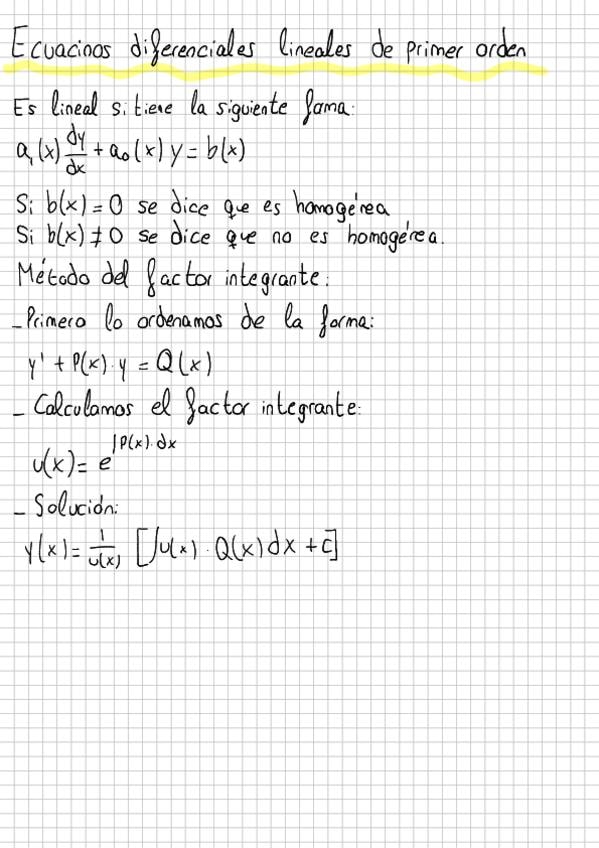 Ecuacinos diferenciales lineales de primer orden
Es lineal si tiene la siguiente foma:
a₁(x) dy/dx + a₀(x) y = b(x)
Si b(x) = 0 se dice que es homogénea
Si b(x) ≠ 0 se dice que no es homogénea.
Método del factor integrante:
- Primero lo ordenamos de la forma:
y' + P(x)·y = Q(x)
- Calculamos el factor integrante:
u(x) = e^∫P(x)·dx
- Solución:
y(x) = 1/u(x) [∫u(x)·Q(x)dx + C]